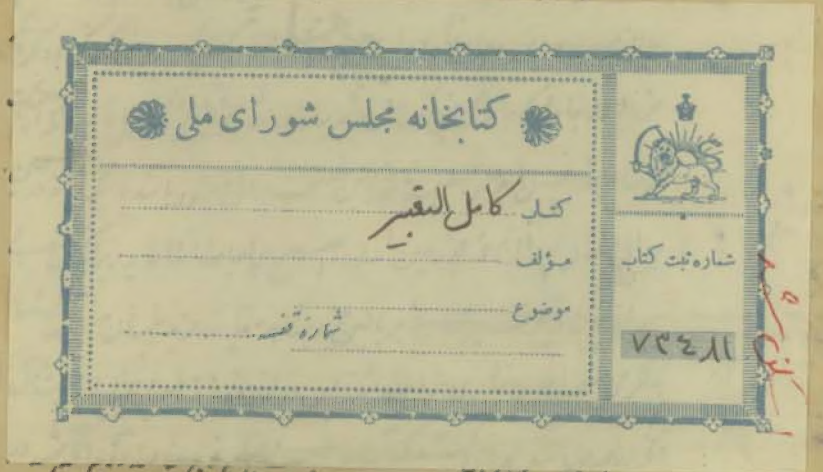 کتابخانه مجلس شورای ملی
کتاب کامل التعبیر
مؤلف
موضوع
شماره قفسه
شماره ثبت کتاب
۷۳۴۸۱